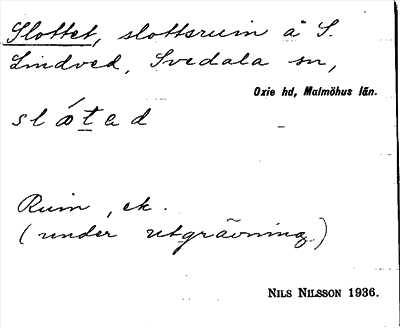 Slottet, slottsruin å S.
Lindved, Svedala sn,
Oxie hd, Malmöhus län.
Ruin, ek.
(under utgrävning.)
NILS NILSSON 1936.